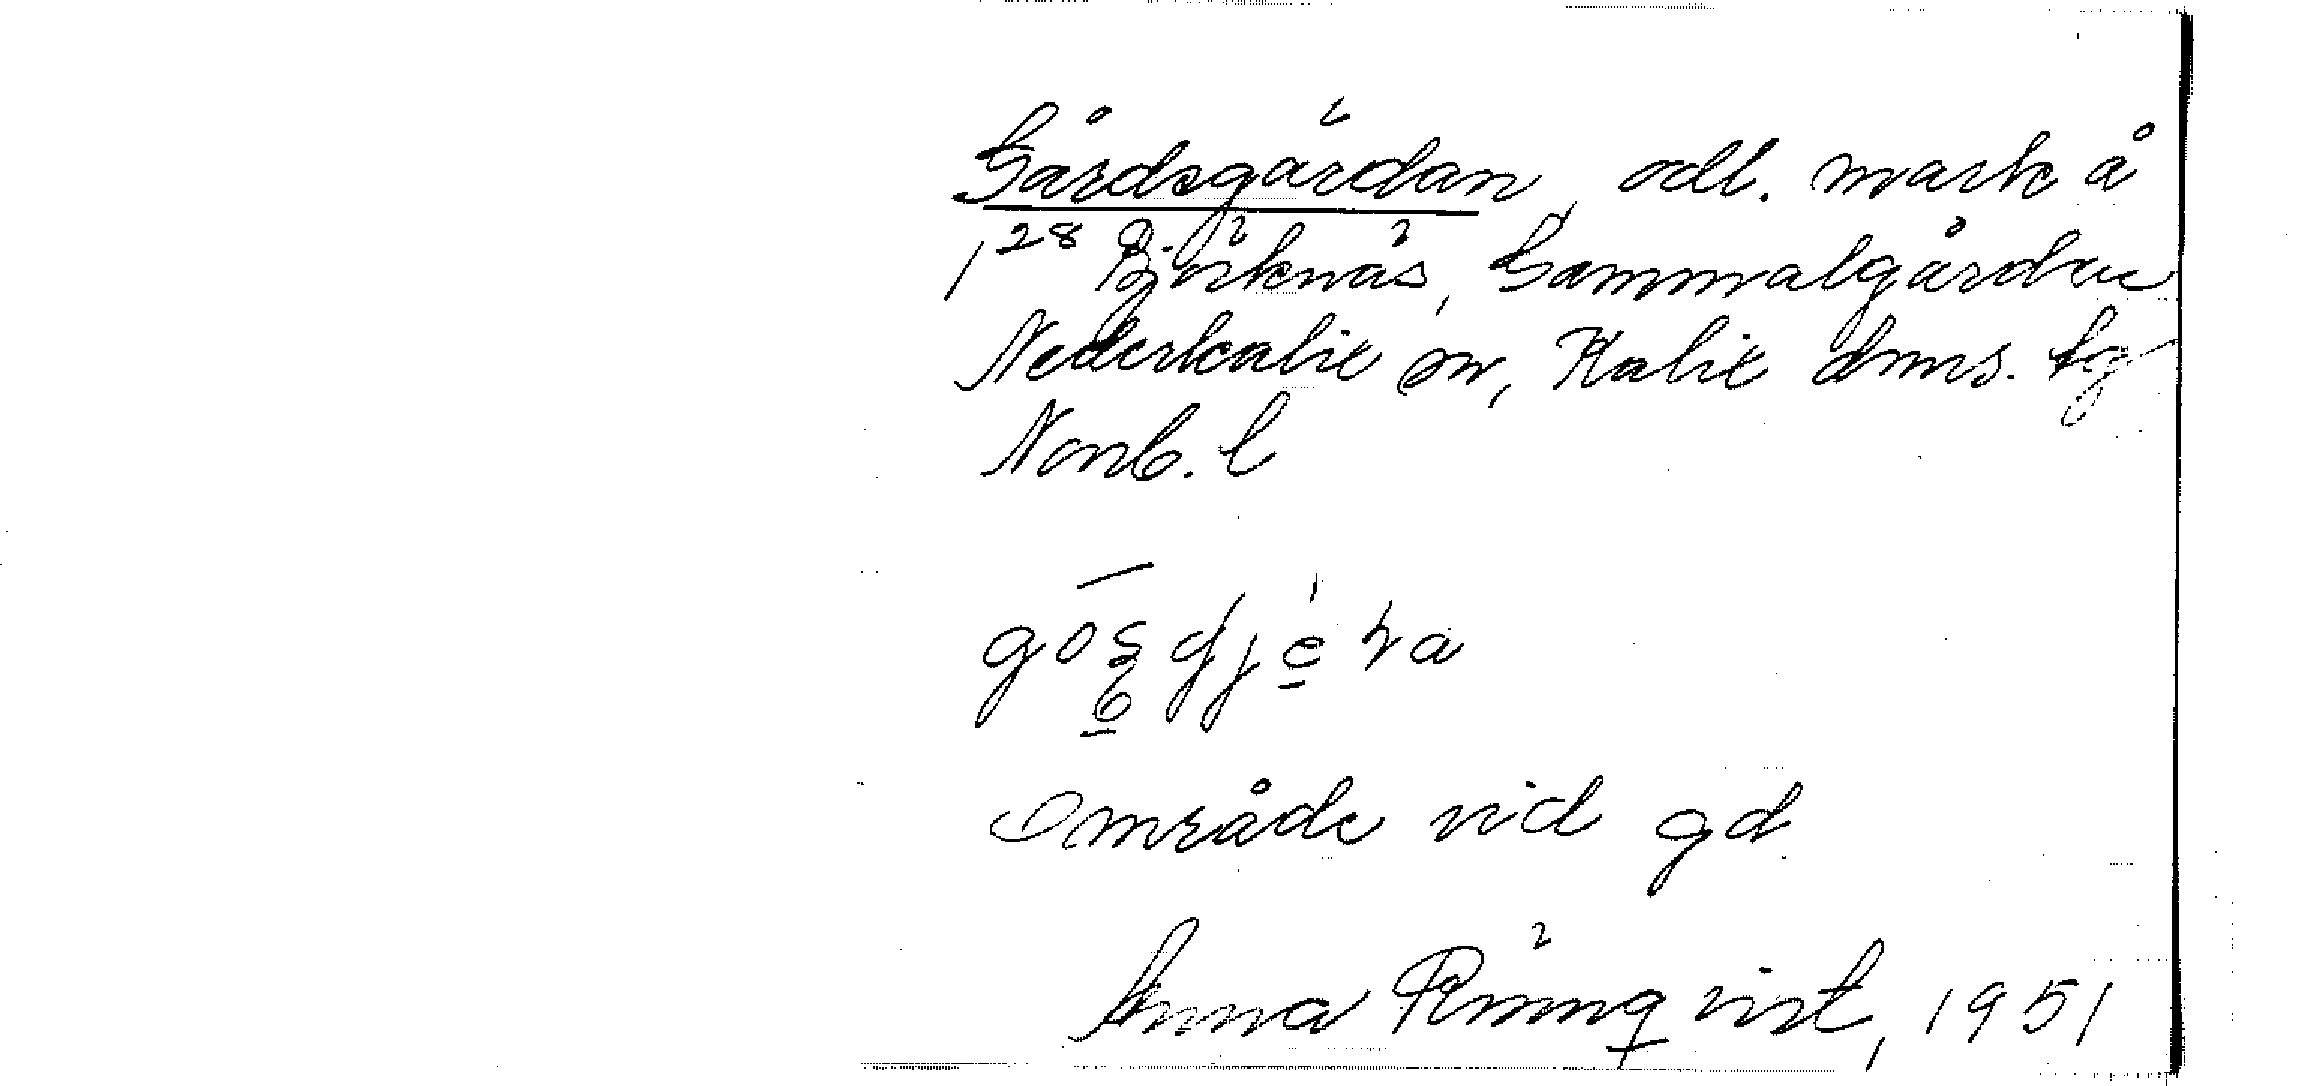 Gårdsgärdan, odl. mark å
1²⁸ Björknäs, Gammalgården
Nederkalix sn, Kalix dmns. tg
Norrb. l
Område vid gd.
Anna Rönnqvist, 1951